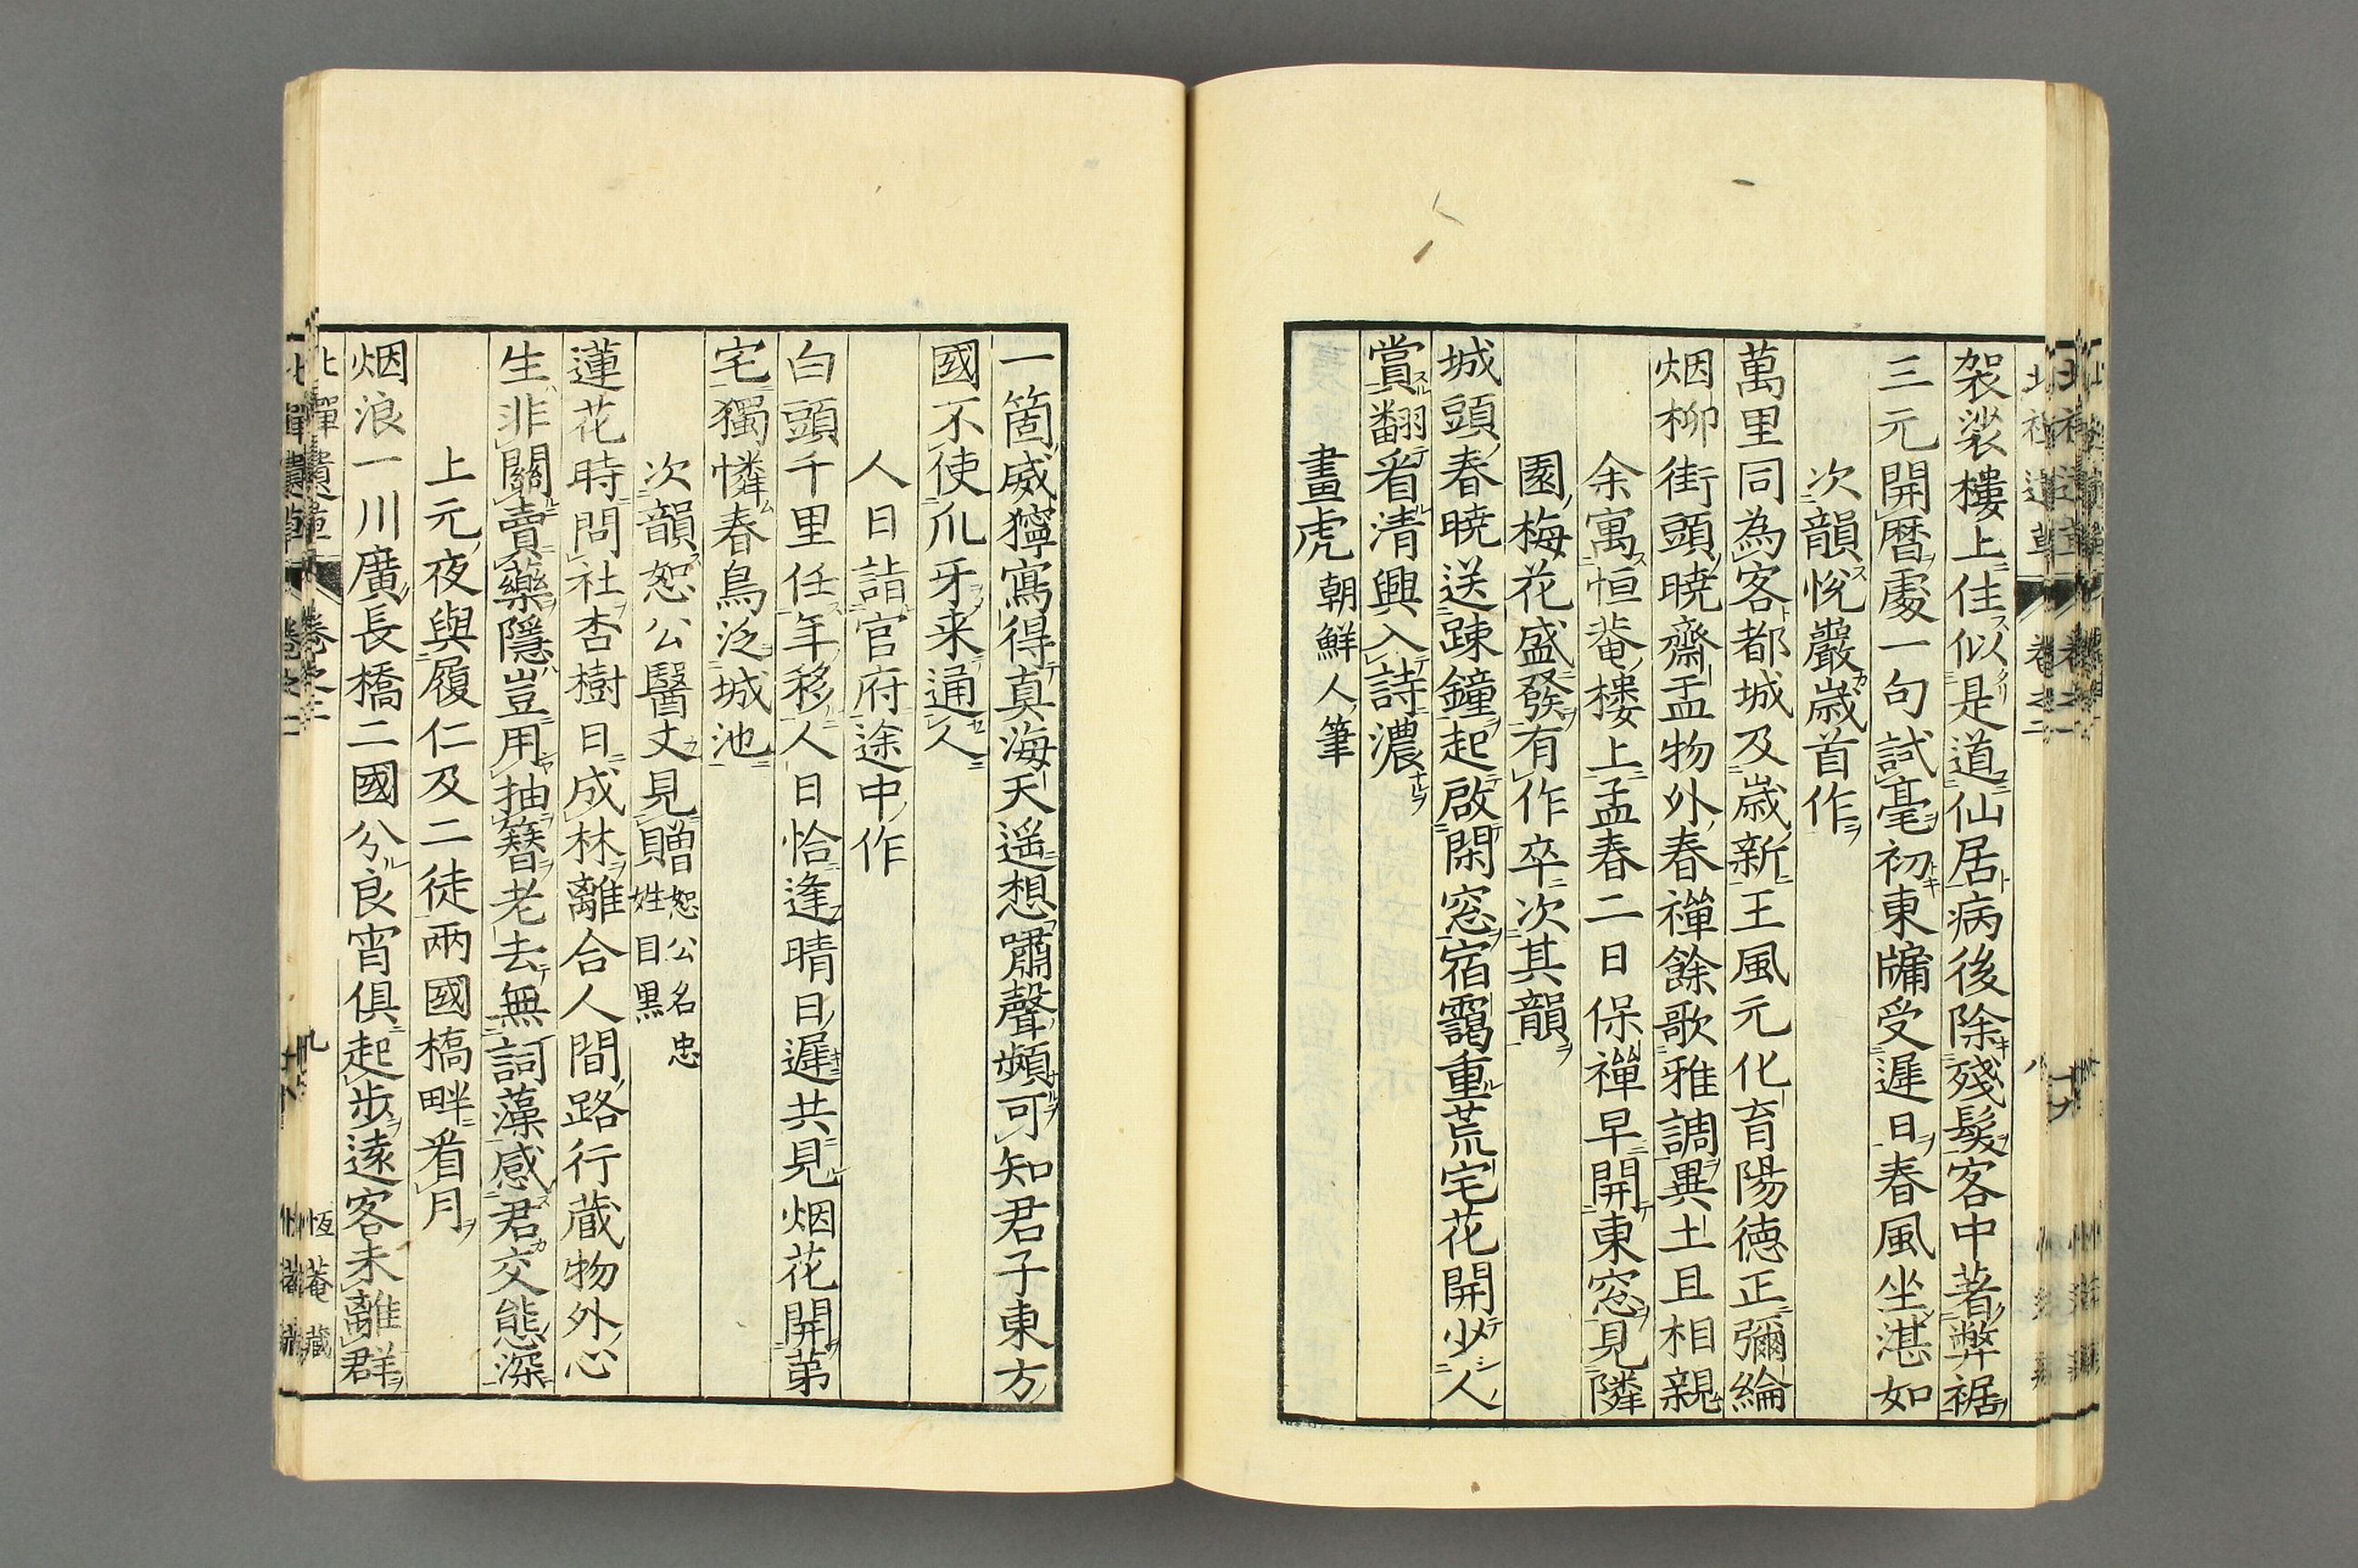 袈裟樓上住似是道仙居病後除殘髮客中著弊裾
三元開暦處一句試毫初東牖受遲日春風坐湛如
次韻悅巖歳首作
萬里同為客都城及歳新王風元化育陽德正彌綸
烟柳街頭曉齋盂物外春禪餘歌雅調異土且相親
余寓恒菴樓上孟春二日保禪早開東窓見隣
園梅花盛發有作卒次其韻
城頭春曉送疎鐘起啟閑窓宿靄重荒宅花開少人
賞翻看清興入詩濃
畫虎朝鮮人筆
一箇威獰寫得真海天遥想嘯聲頻可知君子東方
國不使爪牙来通人
人日詣官府途中作
白頭千里任年移人日恰逢晴日遲共見烟花開第
宅獨憐春鳥泛城池
次韻恕公醫丈見贈恕公名忠姓目黒
蓮花時問社杏樹日成林離合人間路行蔵物外心
生非關賣藥隱豈用抽簪老去無詞藻感君交態深
上元夜與履仁及二徒兩國橋畔看月
烟浪一川廣長橋二國分良宵俱起步遠客未離群
恆菴藏